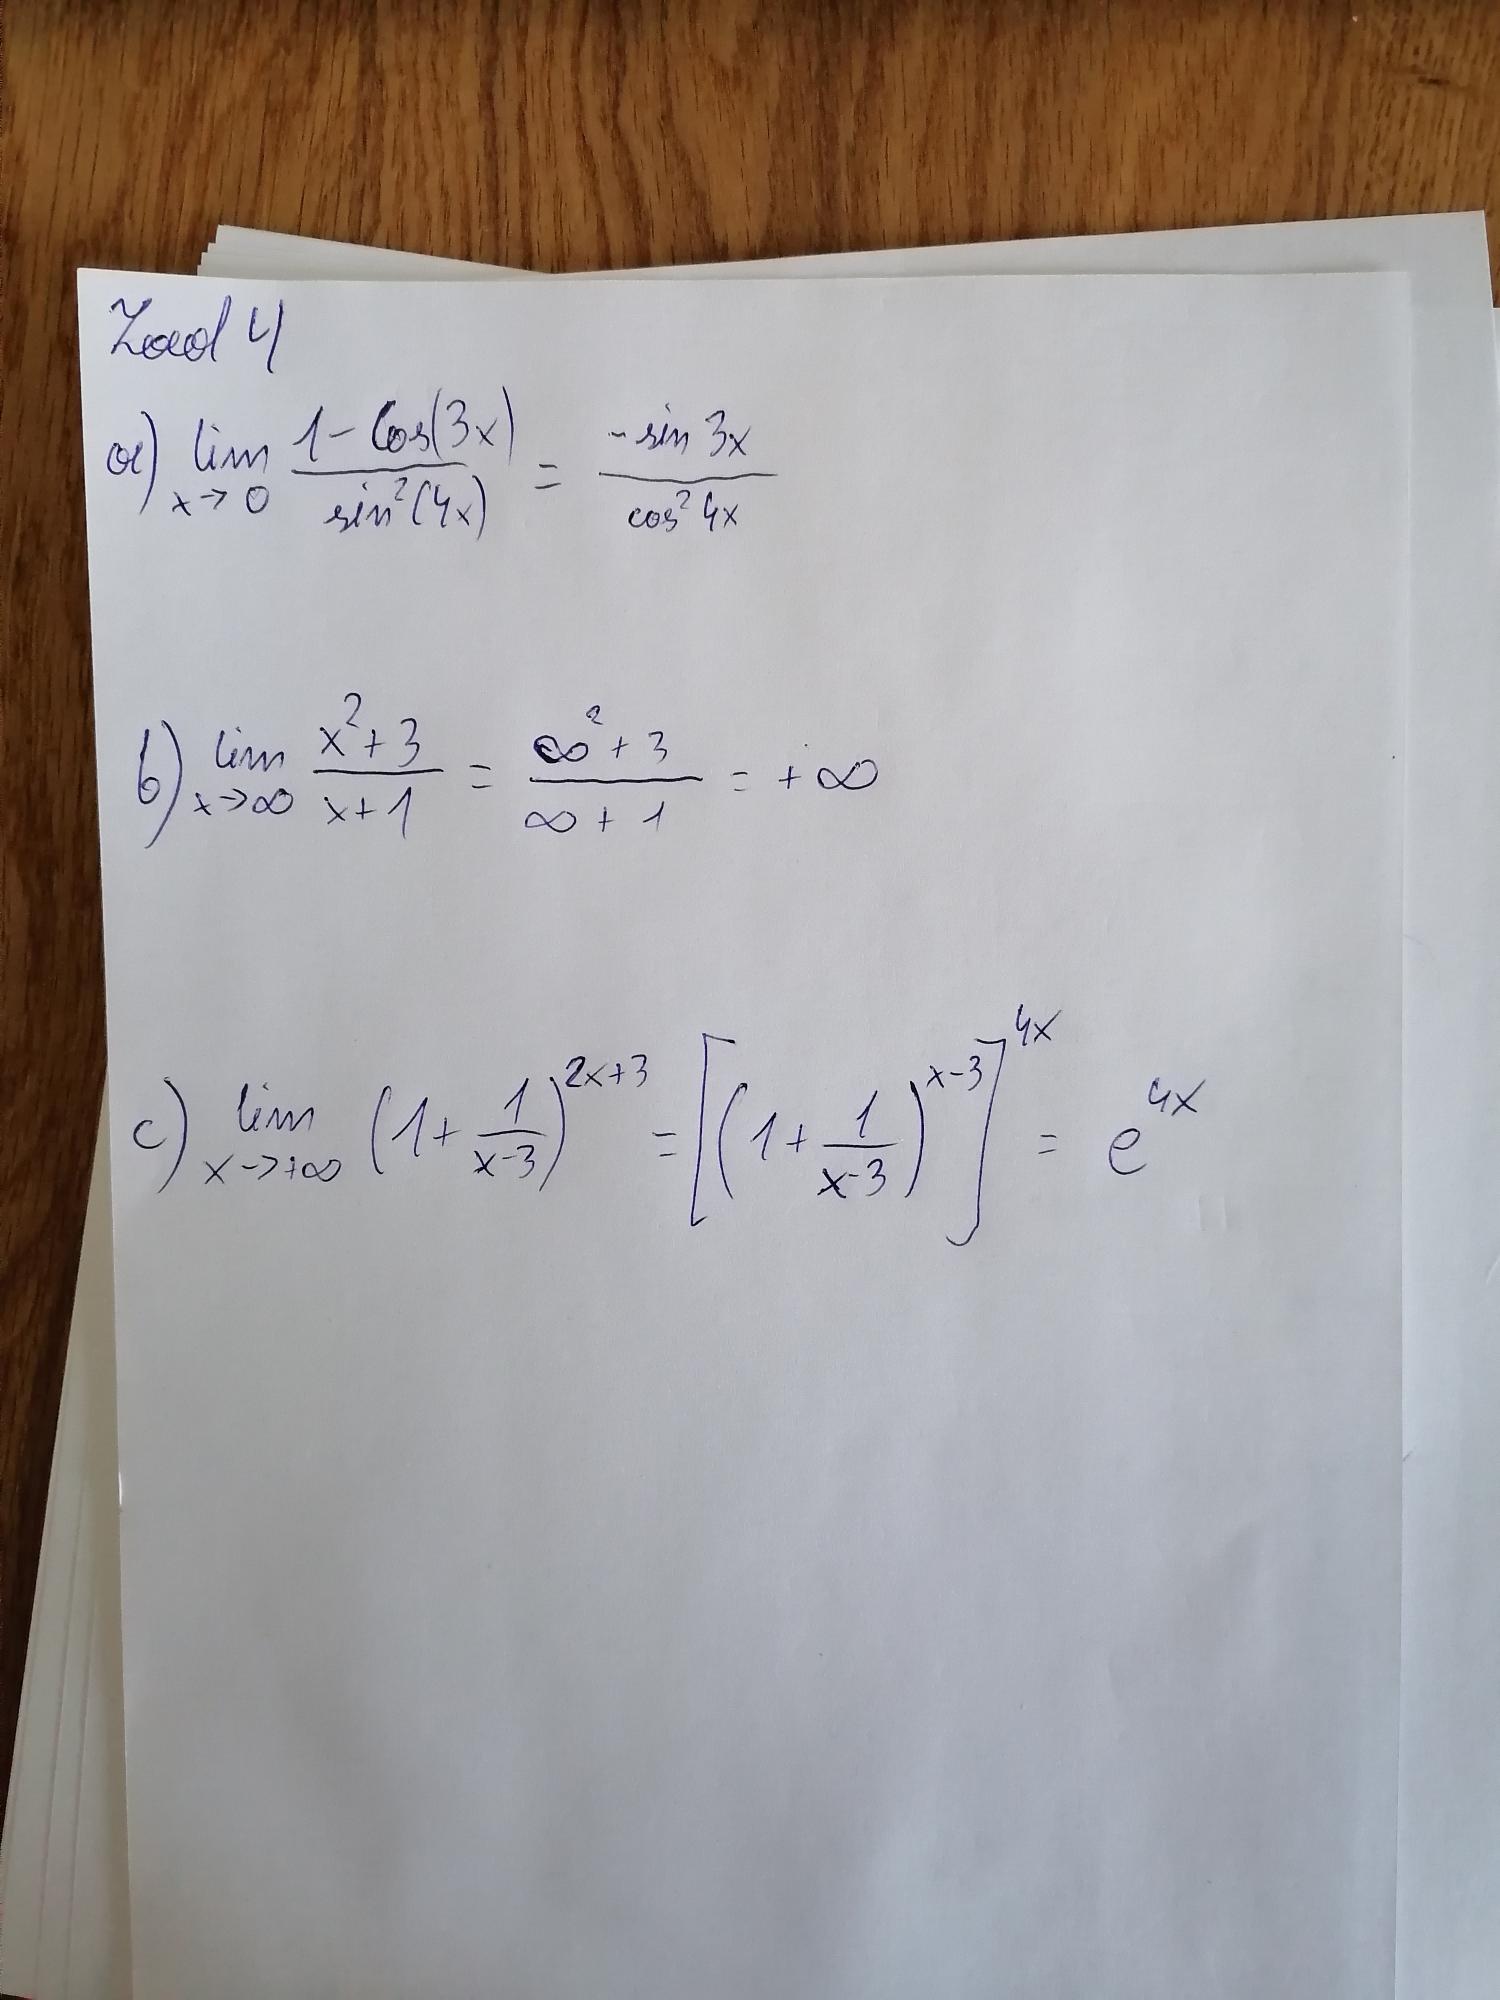 Zad 4
a) lim x→0 (1 - cos(3x)) / (sin²(4x)) = (-sin 3x) / (cos² 4x)
b) lim x→∞ (x² + 3) / (x + 1) = (∞² + 3) / (∞ + 1) = +∞
c) lim x→+∞ (1 + 1/(x-3))^(2x+3) = [(1 + 1/(x-3))^(x-3)]^(4x) = e^(4x)